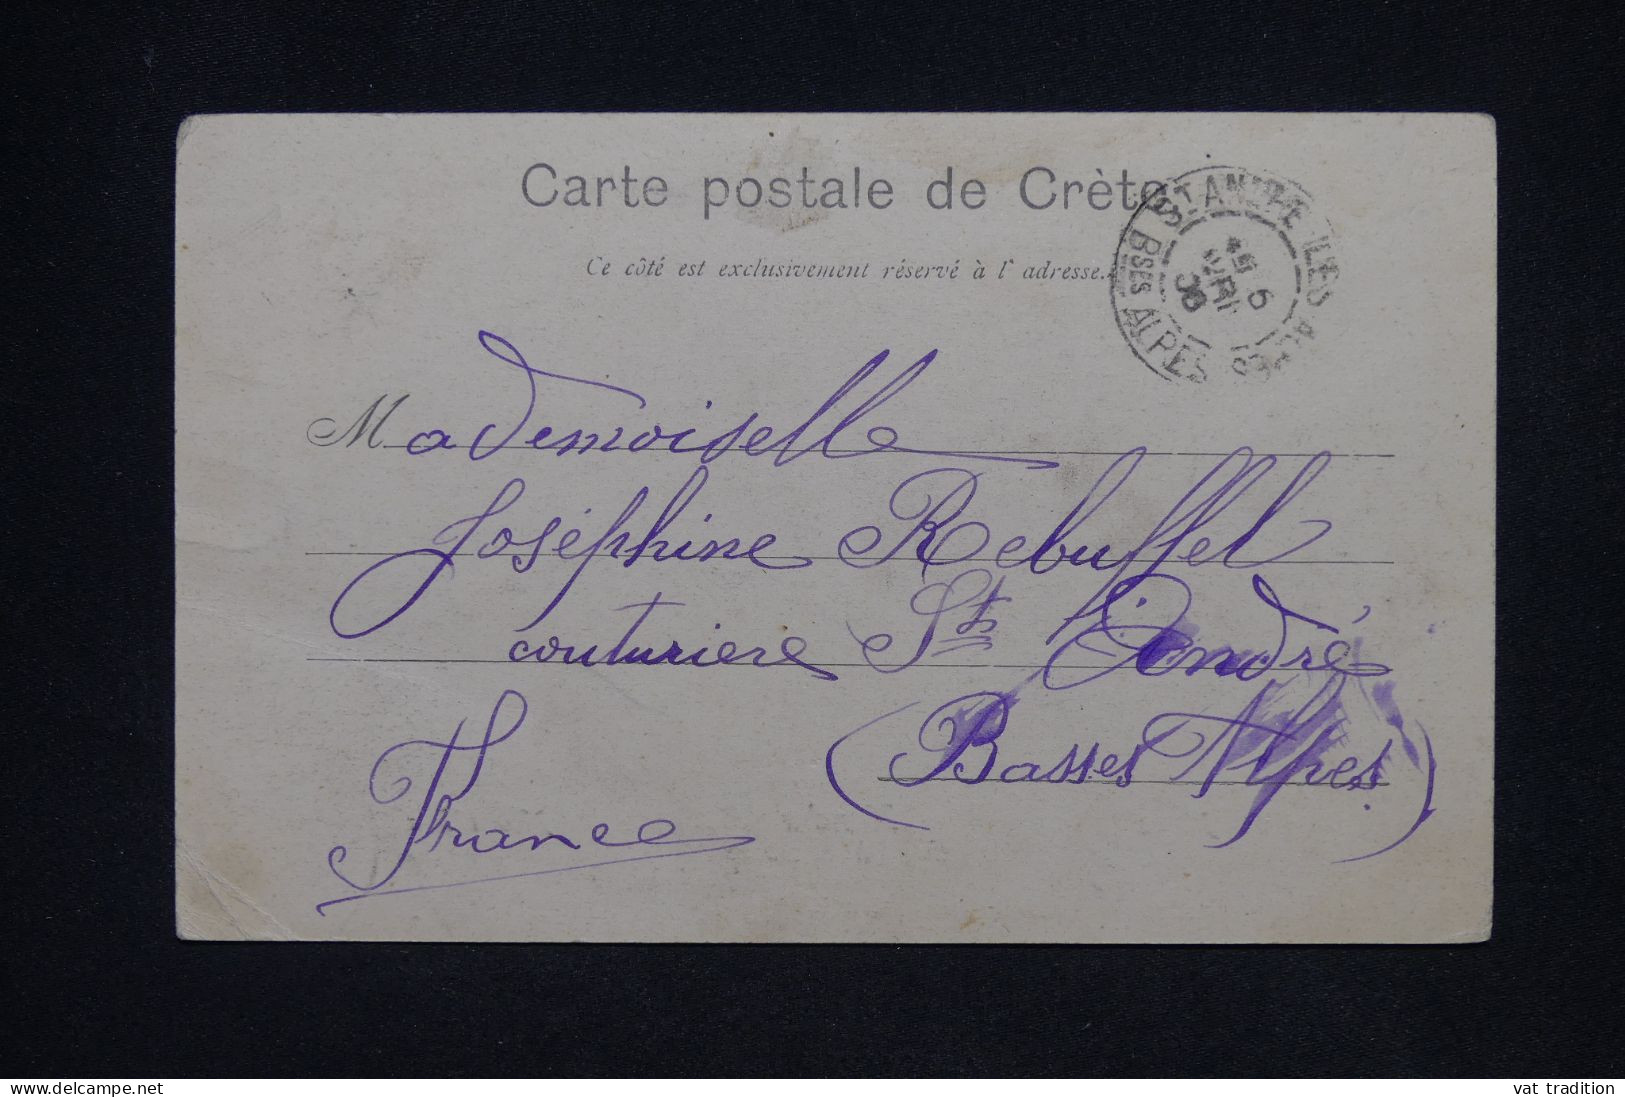 Carte postale de Crète
Ce côté est exclusivement réservé à l'adresse.
ST ANDRE LES ALPES
BSES ALPES
6
AVRIL
Mademoiselle
Joséphine Rebuffel
couturiere St André
(Basses Alpes)
France
www.delcampe.net
vat tradition